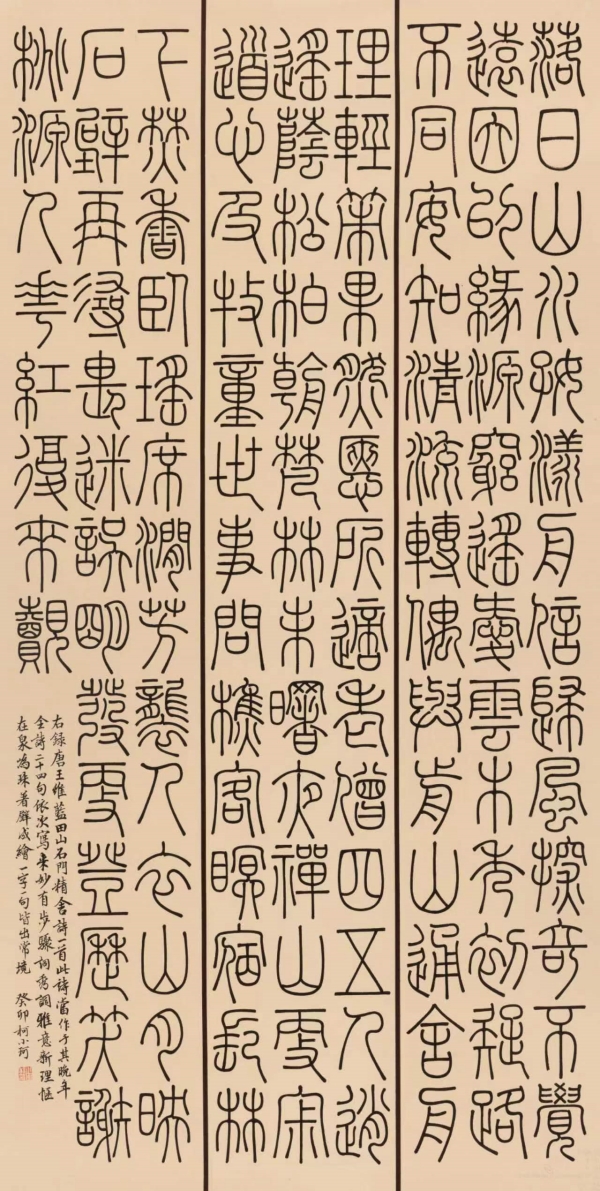 落日山水好漾舟信歸風探奇不覺
遠因以緣源窮遙愛雲木秀初疑路
不同安知清流轉偶與前山通舍舟
理輕策果然愜所適老僧四五人逍
遙蔭松柏朝梵林未曙夜禪山更寂
道心及牧童世事問樵客暝宿長林
下焚香臥瑤席澗芳襲人衣山月映
石壁再尋畏迷誤明發更登歷笑謝
桃源人花紅復來覿
右錄唐王維藍田山石門精舍詩一首此詩當作于其晚年
全詩二十四句依次寫來妙有步驟詞秀調雅意新理愜
在泉爲珠著壁成繪一字一句皆出常境 癸卯柯小